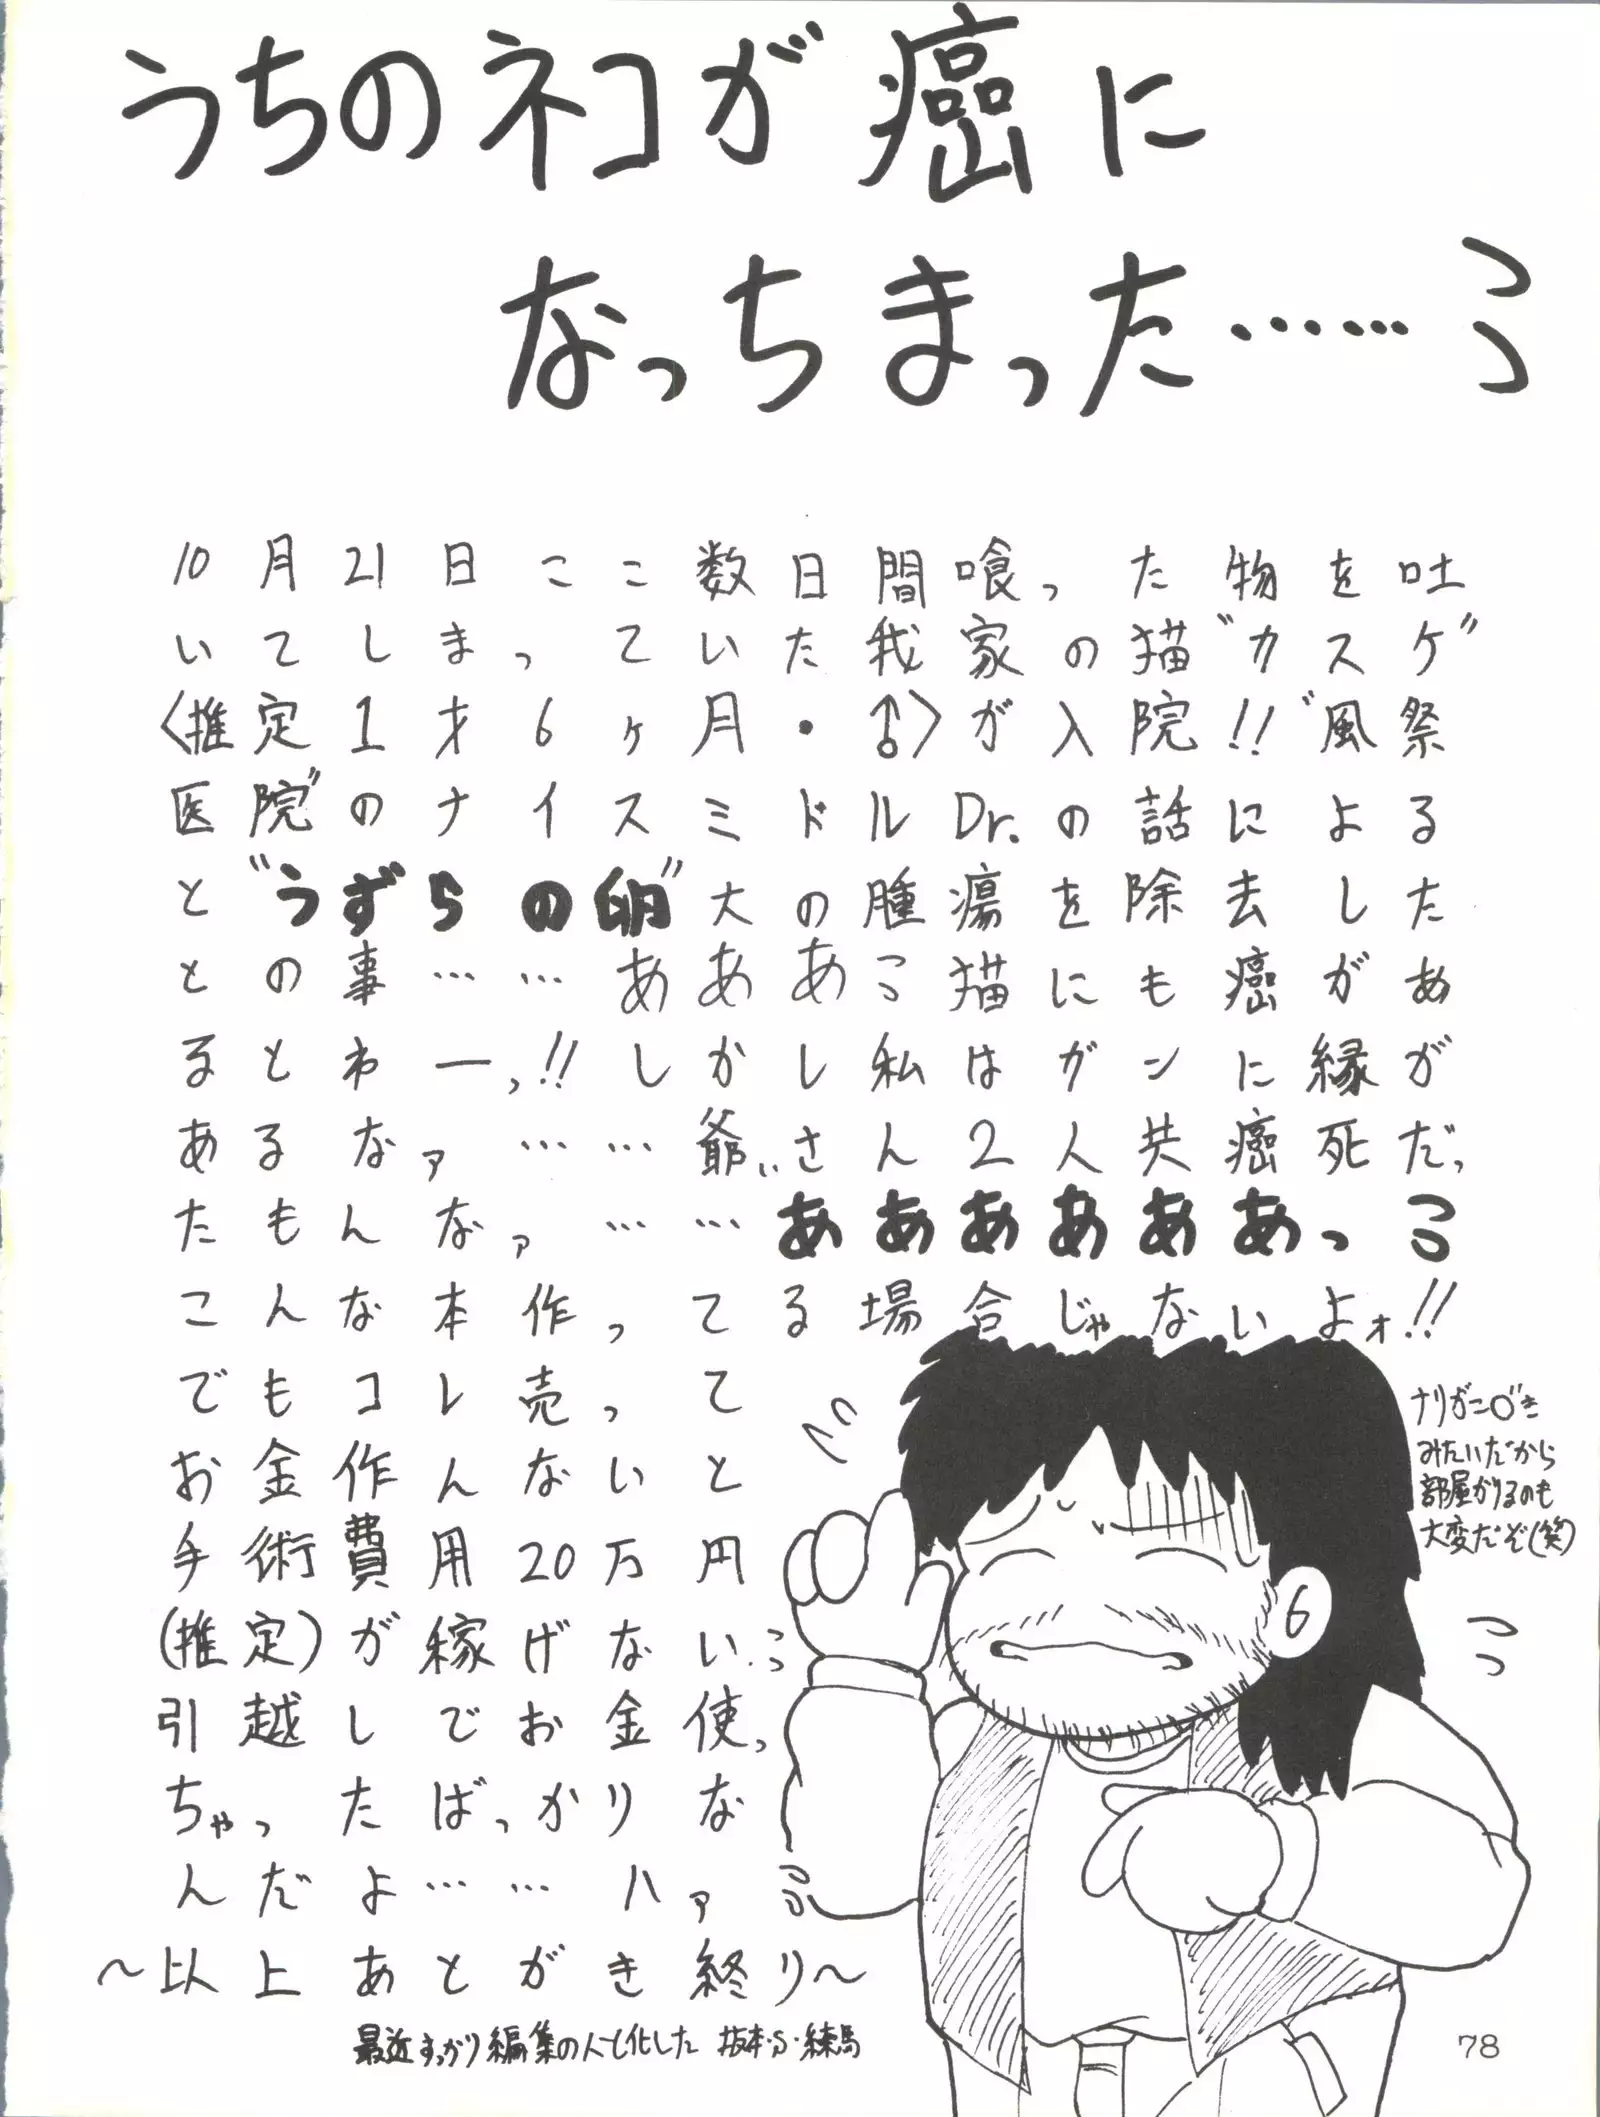 うちのネコが癌に
なっちまった……っっ
10月21日ここ数日間喰った物を吐
いてしまっていた我家の猫"カスケ"
〈推定1才6ヶ月・♂〉が入院!!"風祭
医院"のナイスミドルDr.の話による
と"うずらの卵"大の腫瘍を除去した
との事……あああっっ猫にも癌があ
るとわーっ!!しかし私はガンに縁が
あるなァ……爺ぃさん2人共癌死だっ
たもんなァ……ああああああっっっ
こんな本作ってる場合じゃないよォ!!
でもコレ売って
お金作んないと
手術費用20万円
(推定)が稼げないっっ
引越しでお金使っ
ちゃったばっかりな
んだよ……ハァっっ
〜以上あとがき終り〜
最近すっかり編集の人と化した 抜本・S・練馬
ナリがこ○"き
みたいだから
部屋かりるのも
大変だぞ(笑)
78